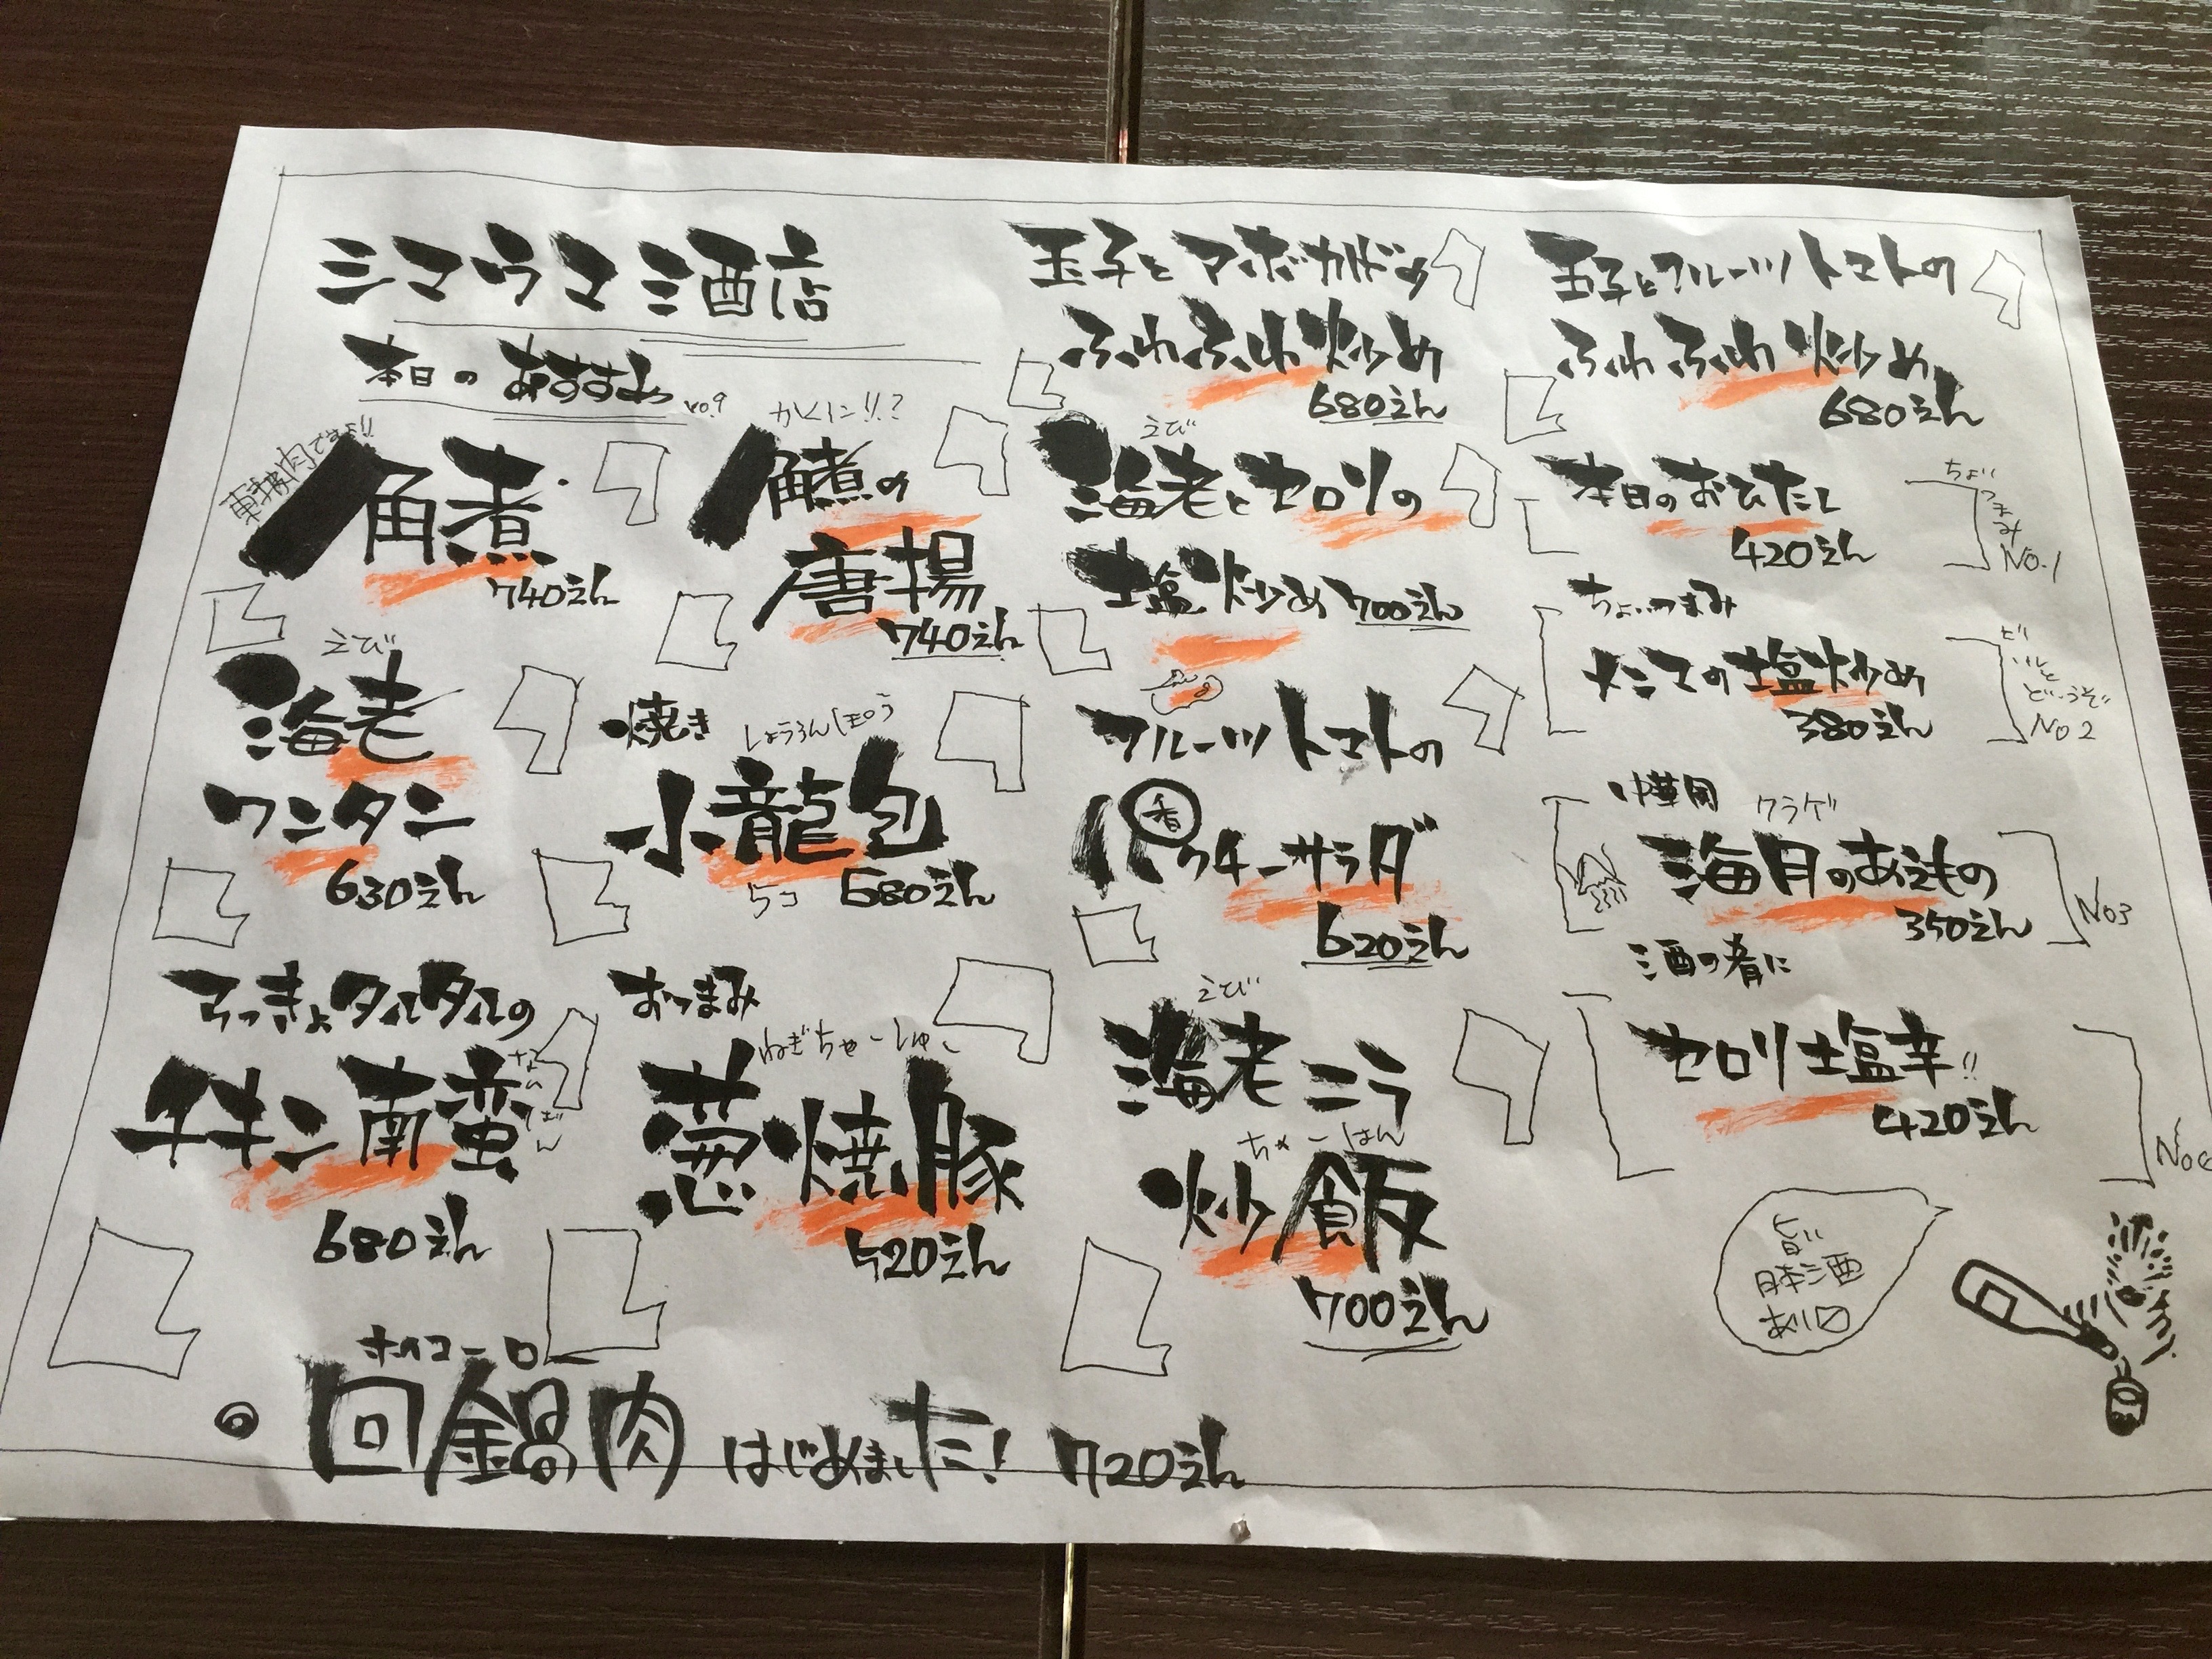 シマウマ酒店
本日のおすすめ vo.9
東坡肉ですよ!!
角煮
740えん
かくに!!?
角煮の
唐揚
740えん
えび
海老
ワンタン
630えん
焼き
しょうろんぽう
小龍包
5コ 680えん
らっきょタルタルの
チキン南蛮
なんばん
680えん
おつまみ
ねぎちゃーしゅー
葱焼豚
420えん
ホイコーロー
◎回鍋肉 はじめました! 720えん
玉子とアボカドの
ふわふわ炒め
680えん
えび
海老とセロリの
塩炒め 700えん
フルーツトマトの
香
パクチーサラダ
620えん
えび
海老ニラ
ちゃーはん
炒飯
700えん
玉子とフルーツトマトの
ふわふわ炒め
680えん
本日のおひたし
420えん
ちょいつまみ
No.1
ちょいつまみ
メンマの塩炒め
380えん
どうぞ
No2
中華風
クラゲ
海月のあえもの
350えん
No3
酒の肴に
セロリ塩辛!!
420えん
旨い
日本酒
あり〼